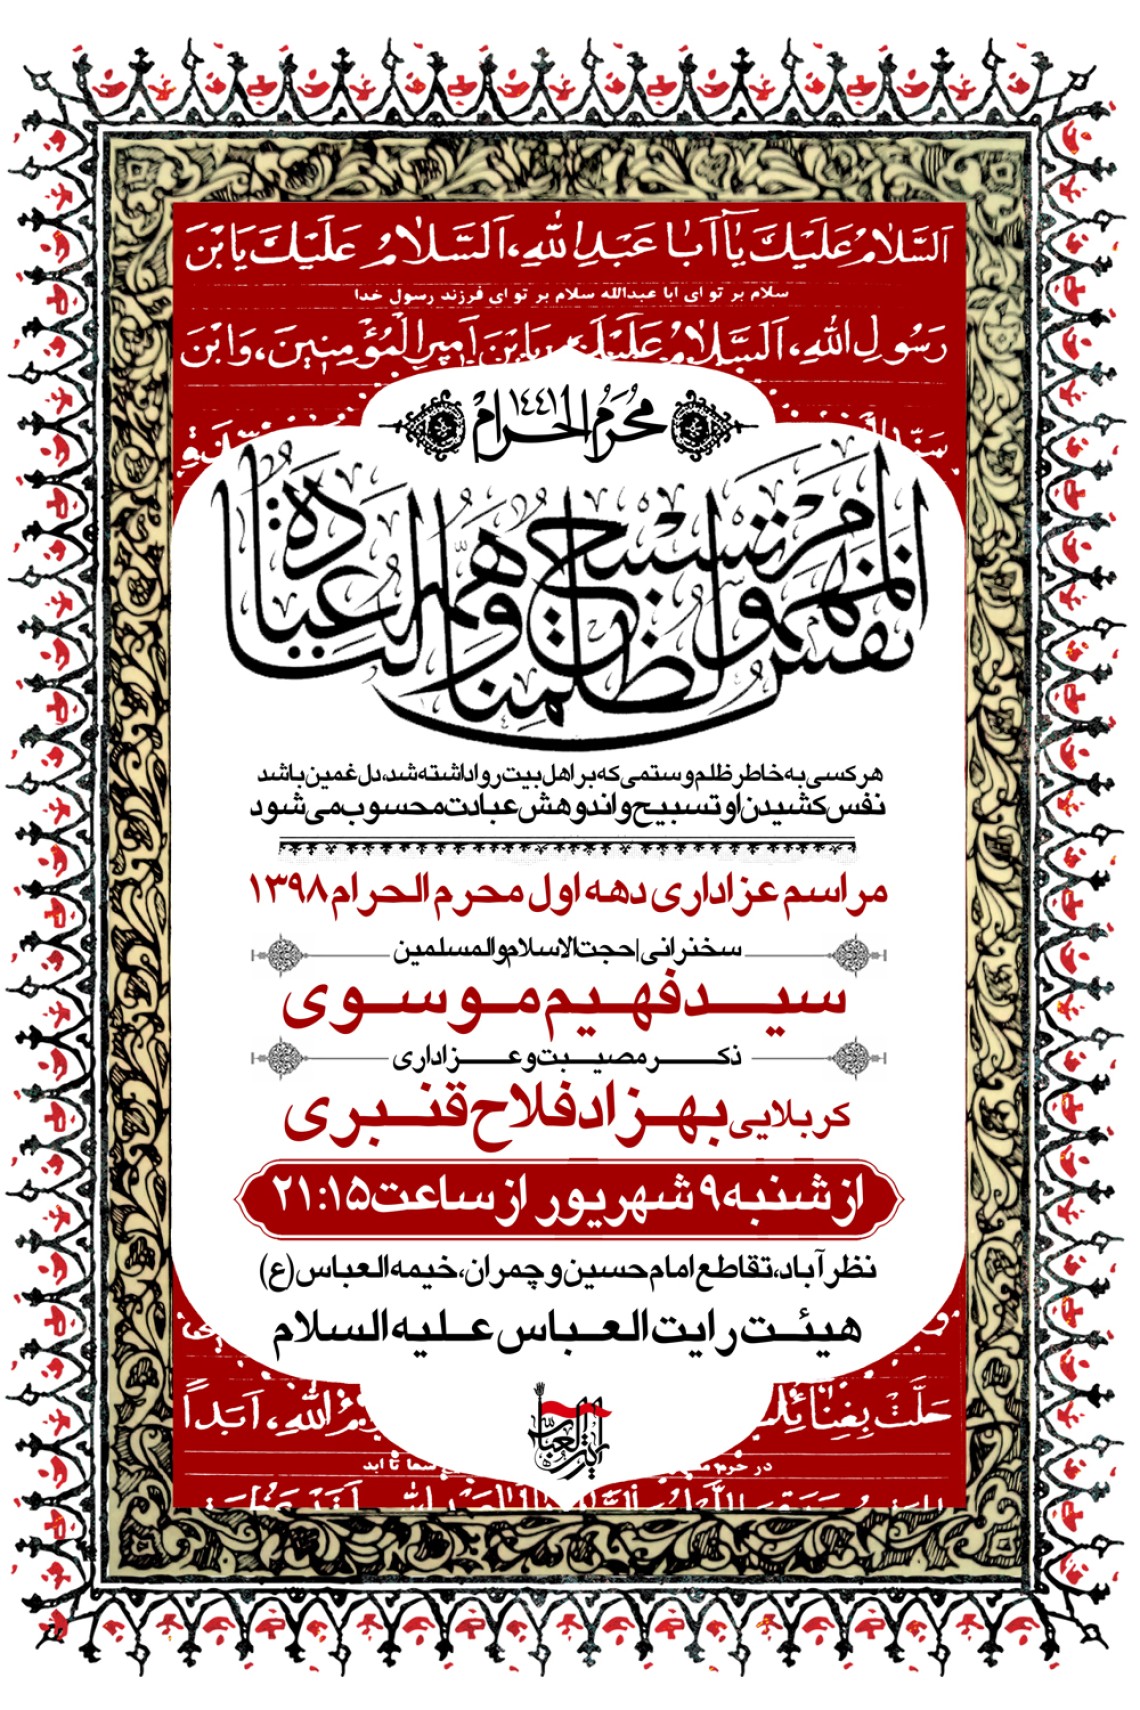 اَلسَّلامُ عَلَيْكَ يَآ اَبا عَبْدِاللهِ، اَلسَّلامُ عَلَيْكَ يَابْنَ
سلام بر تو ای ابا عبدالله سلام بر تو ای فرزند رسول خدا
رَسُولِ اللهِ، اَلسَّلامُ عَلَيْكَ يَابْنَ اَميرِالْمُؤْمِنينَ، وَابْنَ
محرم الحرام ۱۴۴۱
نفس المهموم لظلمنا تسبیح و همه لنا عبادة
هر کسی به خاطر ظلم و ستمی که بر اهل بیت روا داشته شد، دل غمین باشد
نفس کشیدن او تسبیح و اندوهش عبادت محسوب می شود
مراسم عزاداری دهه اول محرم الحرام ۱۳۹۸
سخنرانی | حجت الاسلام والمسلمین
سید فهیم موسوی
ذکر مصیبت و عزاداری
کربلایی بهزاد فلاح قنبری
از شنبه ۹ شهریور از ساعت ۲۱:۱۵
نظرآباد، تقاطع امام حسین و چمران، خیمه العباس (ع)
هیئت رایت العباس علیه السلام
حَلَّتْ بِفِنائِكَ اللهِ، اَبَداً
در حرم تا ابد
رایت العباس